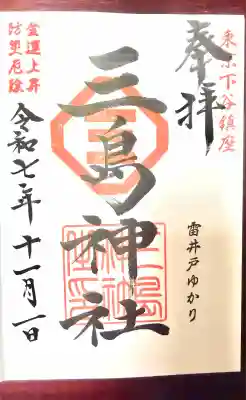 東京下谷鎮座
奉拝
雷井戸ゆかり
三島神社
金運上昇
防災厄除
令和七年十一月一日